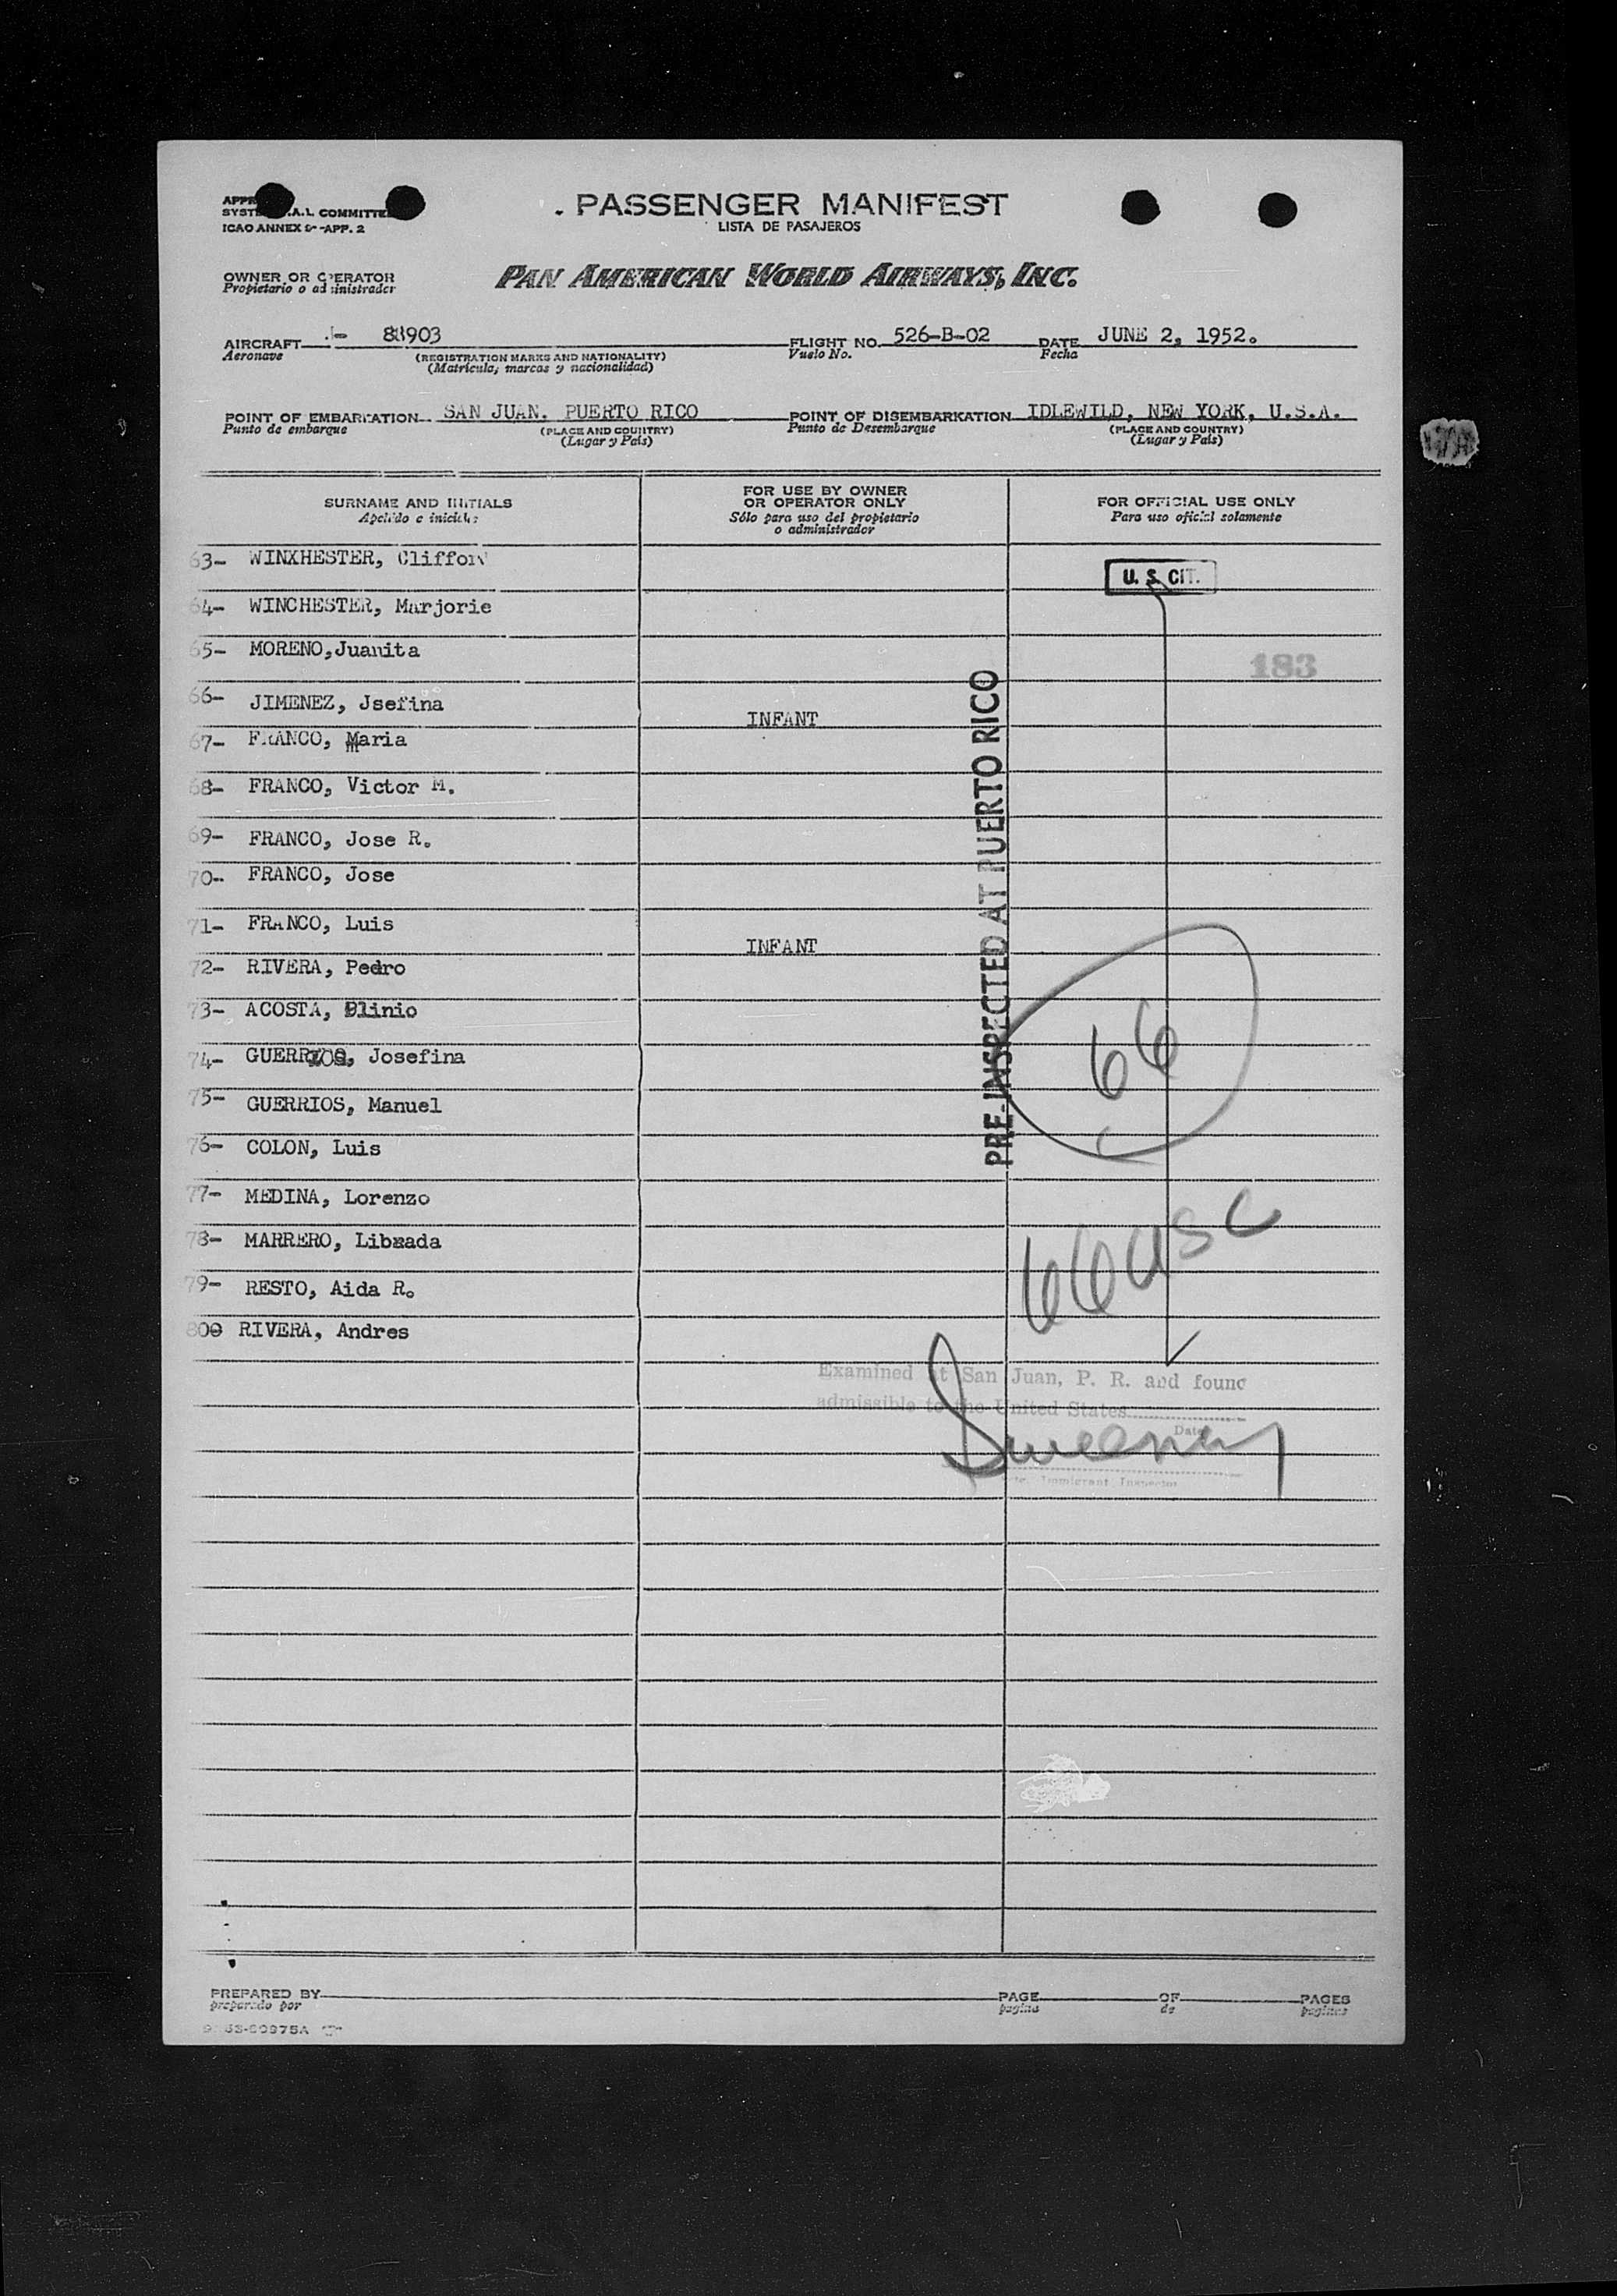 PASSENGER MANIFEST
LISTA DE PASAJEROS
COMMITTEE
ICAO ANNEX 9 -APP. 2
OWNER OR OPERATOR
Propietario o administrador
PAN AMERICAN WORLD AIRWAYS, INC.
AIRCRAFT 88903 FLIGHT NO. 526-B-02 DATE JUNE 2, 1952.
Aeronave (REGISTRATION MARKS AND NATIONALITY) Vuelo No. Fecha
(Matricula, marcas y nacionalidad)
POINT OF EMBARKATION SAN JUAN. PUERTO RICO POINT OF DISEMBARKATION IDLEWILD, NEW YORK, U.S.A.
Punto de embarque (PLACE AND COUNTRY) Punto de Desembarque (PLACE AND COUNTRY)
(Lugar y País) (Lugar y País)
SURNAME AND INITIALS FOR USE BY OWNER OR OPERATOR ONLY FOR OFFICIAL USE ONLY
Apellido e iniciales Sólo para uso del propietario o administrador Para uso oficial solamente
63- WINXHESTER, Clifford
U. S. CIT.
64- WINCHESTER, Marjorie
65- MORENO,Juanita
183
66- JIMENEZ, Jsefina
INFANT
67- FRANCO, Maria
68- FRANCO, Victor M.
69- FRANCO, Jose R.
70- FRANCO, Jose
71- FRANCO, Luis
INFANT
72- RIVERA, Pedro
73- ACOSTA, Plinio
74- GUERRIOS, Josefina
75- GUERRIOS, Manuel
76- COLON, Luis
77- MEDINA, Lorenzo
78- MARRERO, Librada
79- RESTO, Aida R.
800 RIVERA, Andres
PRE-INSPECTED AT PUERTO RICO
66
66 USC
Examined at San Juan, P. R. and found
admissible to the United States
Date
Sweeney
Immigrant Inspector
PREPARED BY PAGE OF PAGES
preparado por pagina de paginas